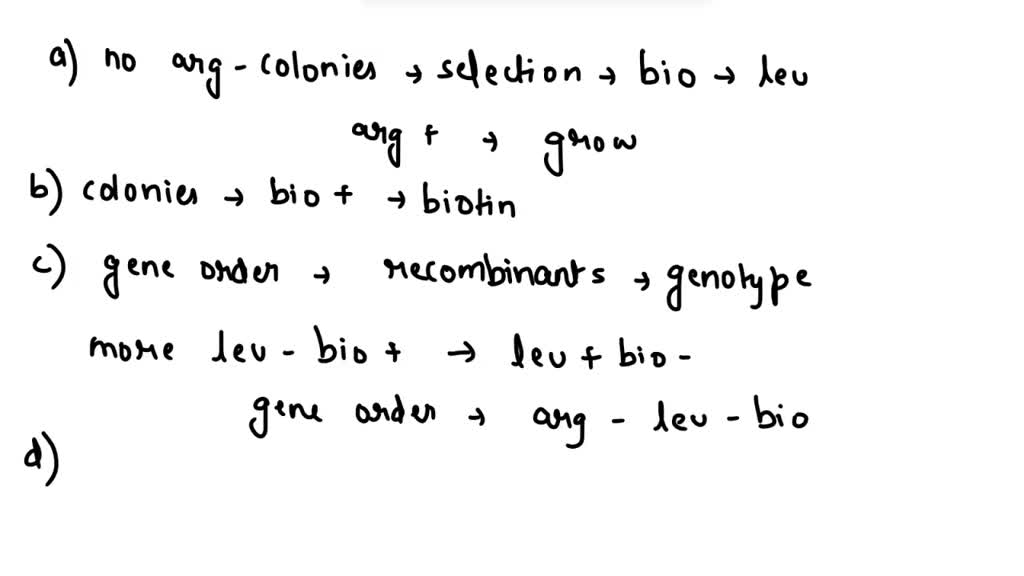 a) no arg - colonies → selection → bio → leu
arg + → grow
b) colonies → bio + → biotin
c) gene order → recombinants → genotype
more leu - bio + → leu + bio -
gene order → arg - leu - bio
d)